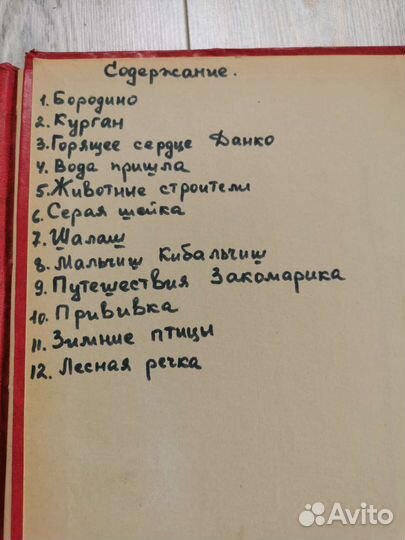 Содержание.
1. Бородино
2. Курган
3. Горящее сердце Данко
4. Вода пришла
5. Животные строители
6. Серая шейка
7. Шалаш
8. Мальчиш Кибальчиш
9. Путешествия Закомарика
10. Прививка
11. Зимние птицы
12. Лесная речка
Avito